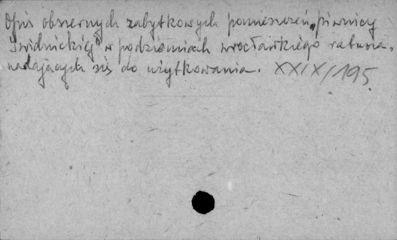 Opis obszernych zabytkowych pomieszczeń "piwnicy
Świdnickiej" w podziemiach wrocławskiego ratusza,
nadających się do użytkowania. XXIX/195